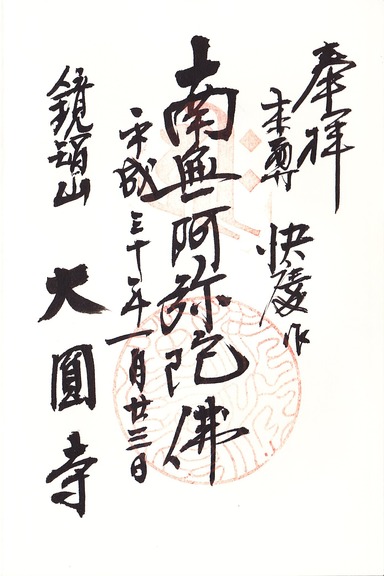 奉拝
本尊 快慶作
南無阿弥陀佛
平成三十年一月廿三日
鏡 山 大圓寺